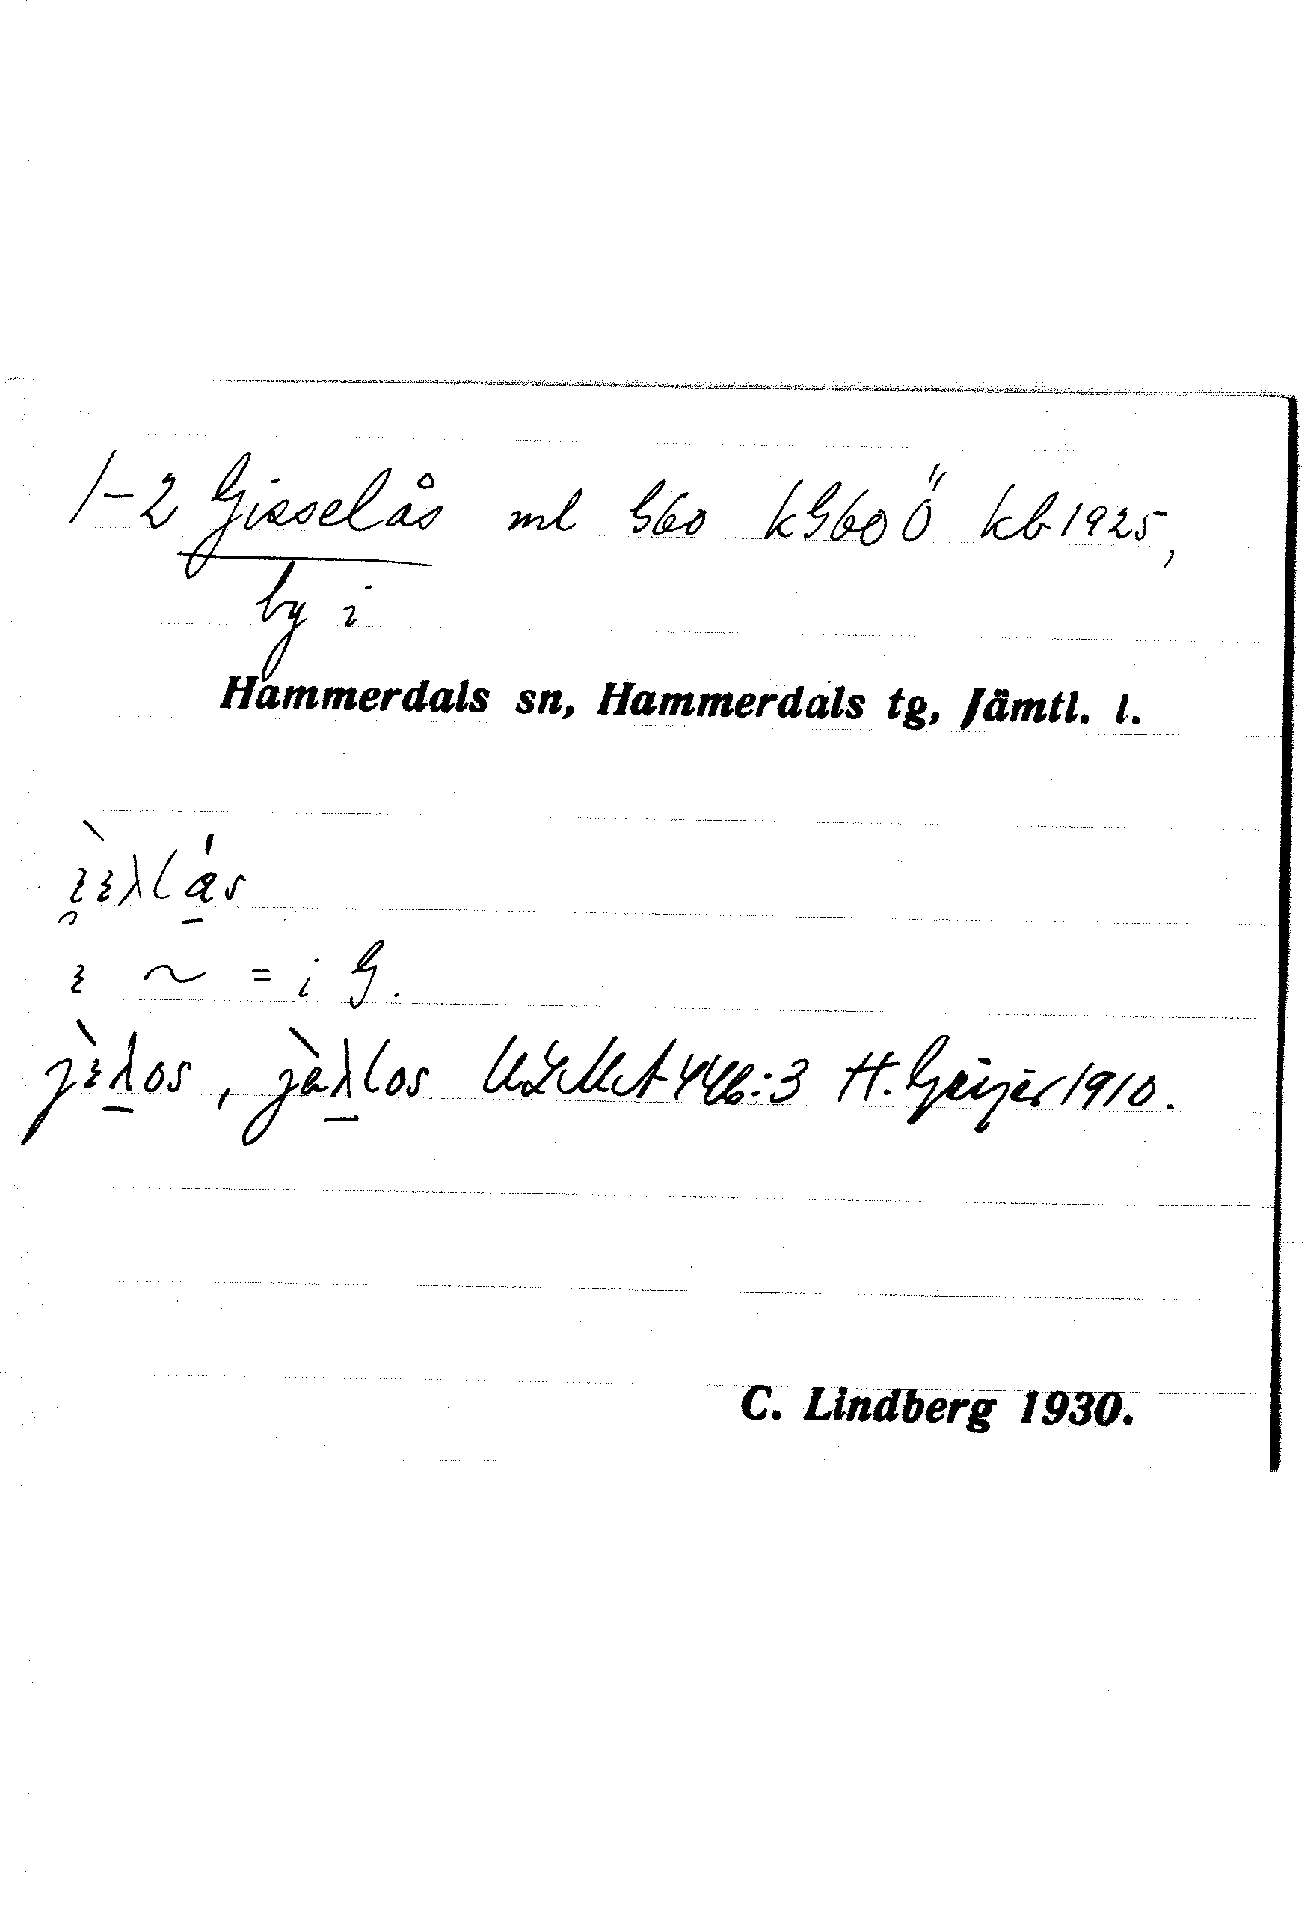 1-2 Gisselås ml G60 kG60Ö kb 1925,
by i
Hammerdals sn, Hammerdals tg, Jämtl. l.
= i G.
ULMA 446:3 H. Geijer 1910.
C. Lindberg 1930.